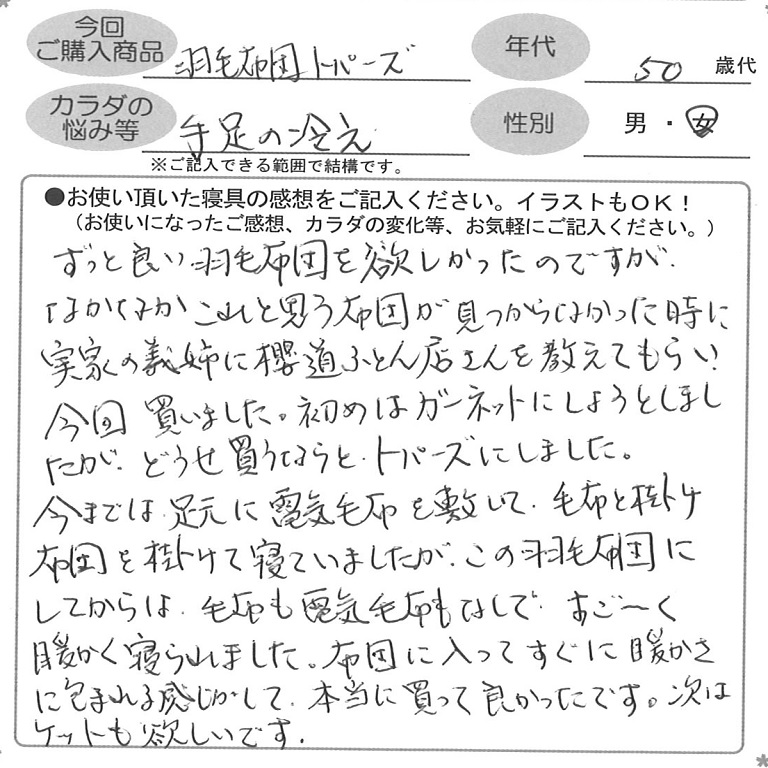 今回
ご購入商品 羽毛布団トパーズ
年代 50 歳代
カラダの
悩み等 手足の冷え
性別 男・女
※ご記入できる範囲で結構です。
●お使い頂いた寝具の感想をご記入ください。イラストもOK!
(お使いになったご感想、カラダの変化等、お気軽にご記入ください。)
ずっと良い羽毛布団を欲しかったのですが、
なかなかこれと思う布団が見つからなかった時に
実家の義姉に櫻道ふとん店さんを教えてもらい
今回買いました。初めはガーネットにしようとしまし
たが、どうせ買うならと、トパーズにしました。
今までは、足元に電気毛布を敷いて、毛布と掛け
布団を掛けて寝ていましたが、この羽毛布団に
してからは、毛布も電気毛布もなしで、すご〜く
暖かく寝られました。布団に入ってすぐに暖かさ
に包まれる感じがして、本当に買って良かったです。次は
ケットも欲しいです。